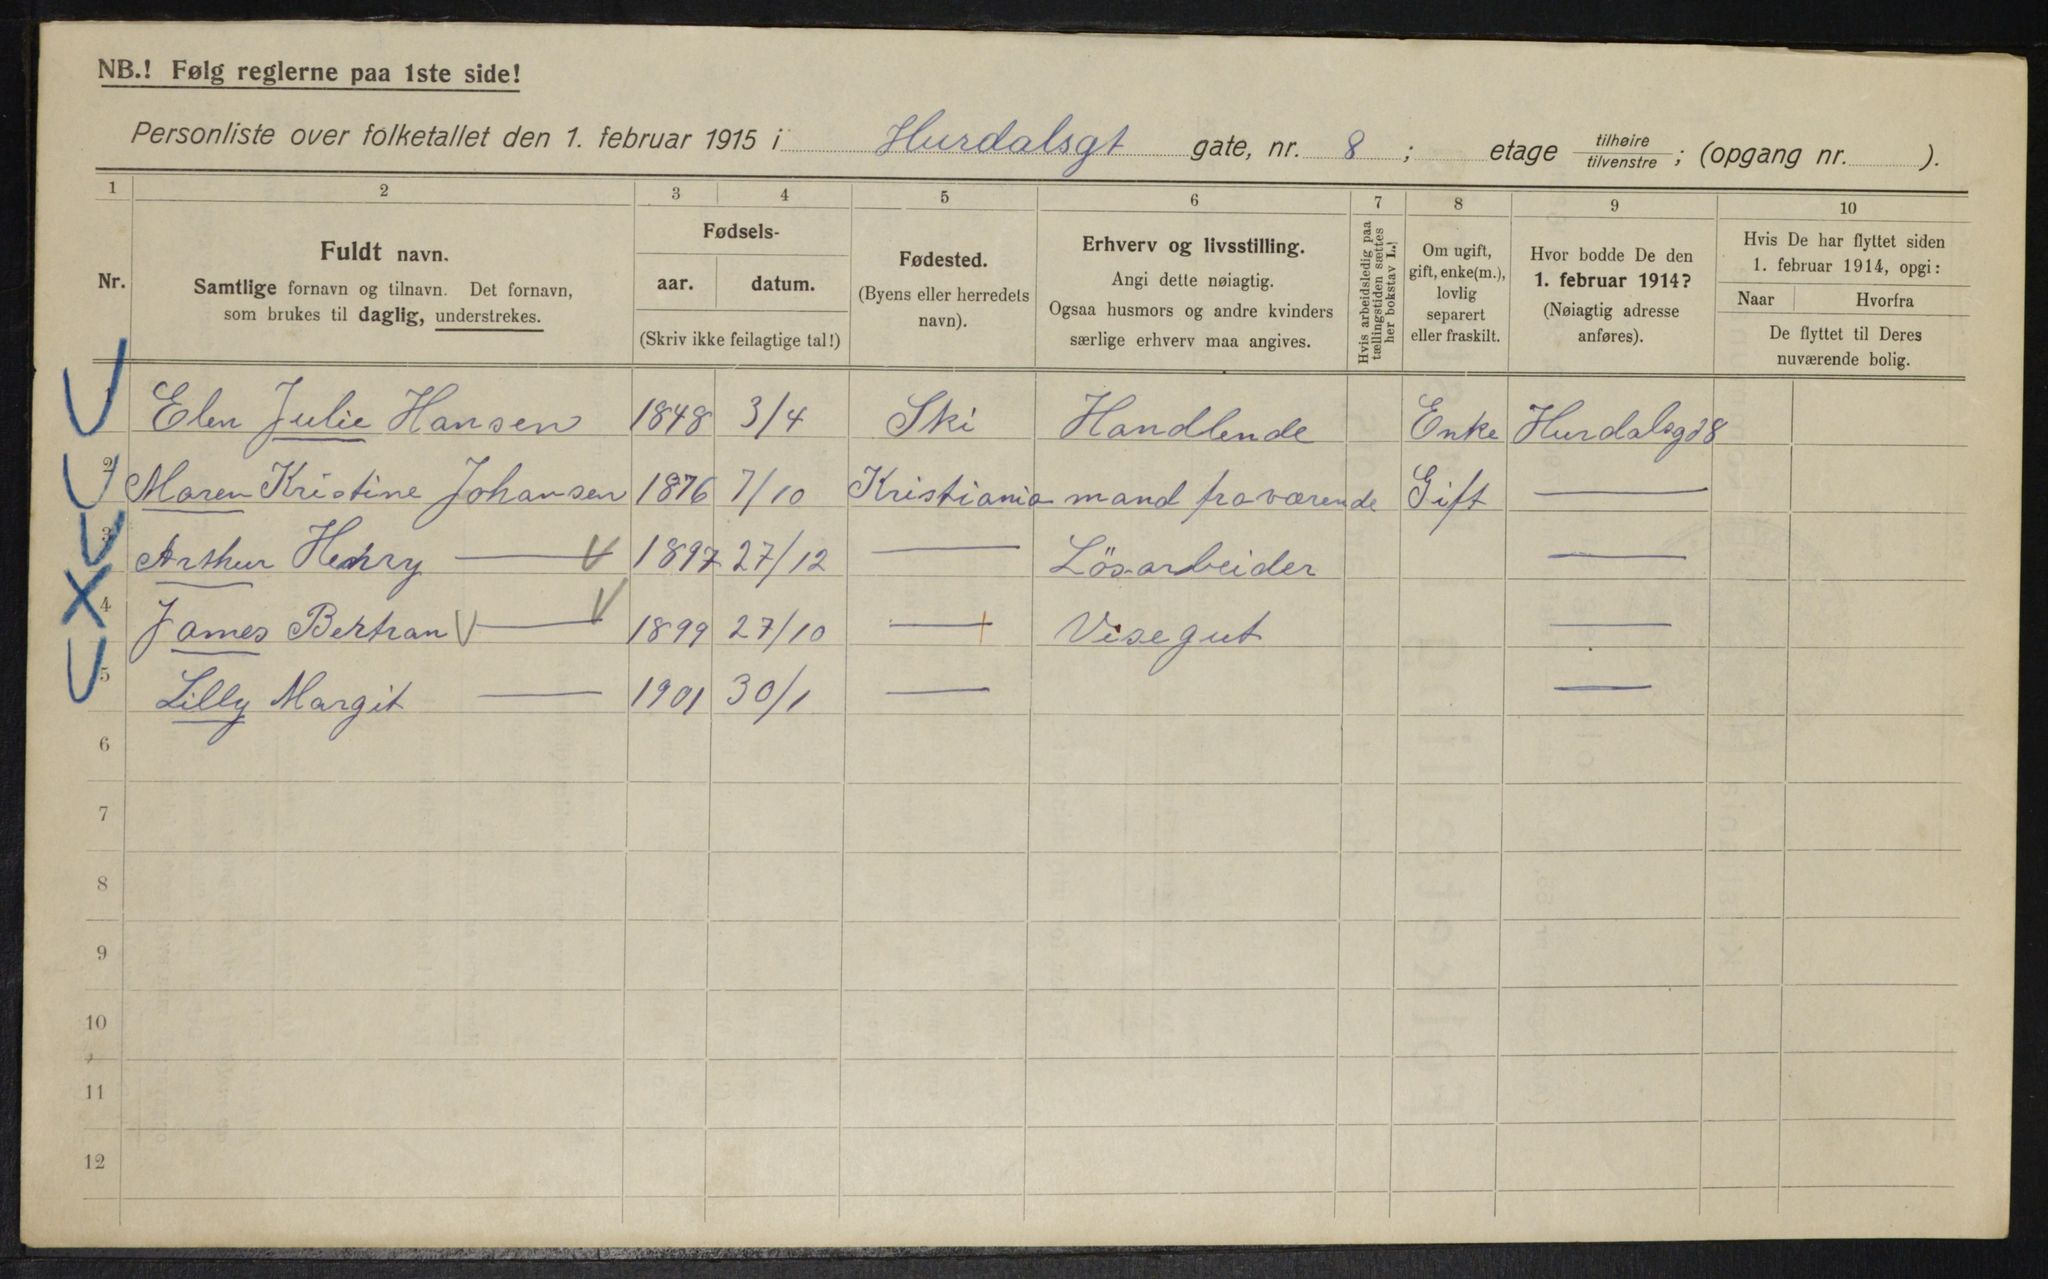 NB.! Følg reglerne paa 1ste side!
Personliste over folketallet den 1. februar 1915 i Hurdalsgt gate, nr. 8 ; etage tilhøire tilvenstre ; (opgang nr. ).
1 2 3 4 5 6 7 8 9 10
Nr.
Fuldt navn.
Samtlige fornavn og tilnavn. Det fornavn,
som brukes til daglig, understrekes.
Fødsels-
aar. datum.
(Skriv ikke feilagtige tal!)
Fødested.
(Byens eller herredets
navn).
Erhverv og livsstilling.
Angi dette nøiagtig.
Ogsaa husmors og andre kvinders
særlige erhverv maa angives.
Hvis arbeidsledig paa
tællingstiden sættes
her bokstav L.
Om ugift,
gift, enke(m.),
lovlig
separert
eller fraskilt.
Hvor bodde De den
1. februar 1914?
(Nøiagtig adresse
anføres).
Hvis De har flyttet siden
1. februar 1914, opgi:
Naar Hvorfra
De flyttet til Deres
nuværende bolig.
1 Elen Julie Hansen 1848 3/4 Ski Handlende Enke Hurdalsgd 8
2 Maren Kristine Johansen 1876 7/10 Kristiania mand fraværende Gift —
3 Arthur Henry — 1897 27/12 — Lösarbeider —
4 James Bertran — 1899 27/10 — Visegut —
5 Lilly Margit — 1901 30/1 — —
6
7
8
9
10
11
12